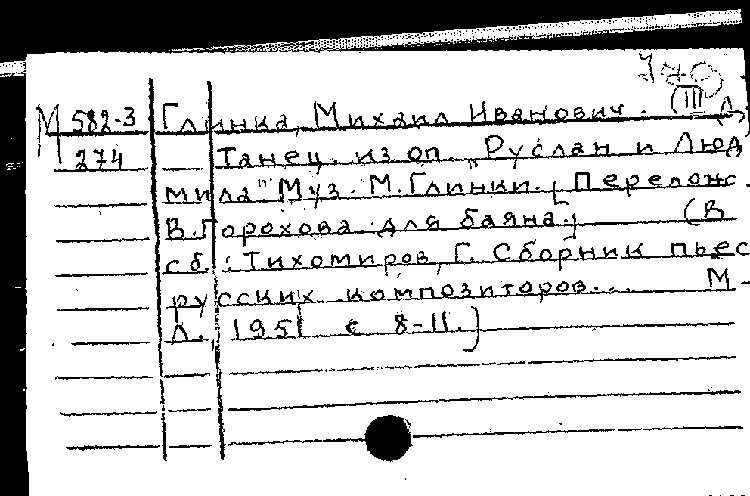 М 582-3 Глинка, Михаил Иванович. (III)
274 Танец из оп. „Руслан и Люд
мила" Муз. М. Глинки. [Перелож.
В. Горохова для баяна.] (В
сб.: Тихомиров, Г. Сборник пьес
русских композиторов... М-
Л., 1951 с 8-11.)